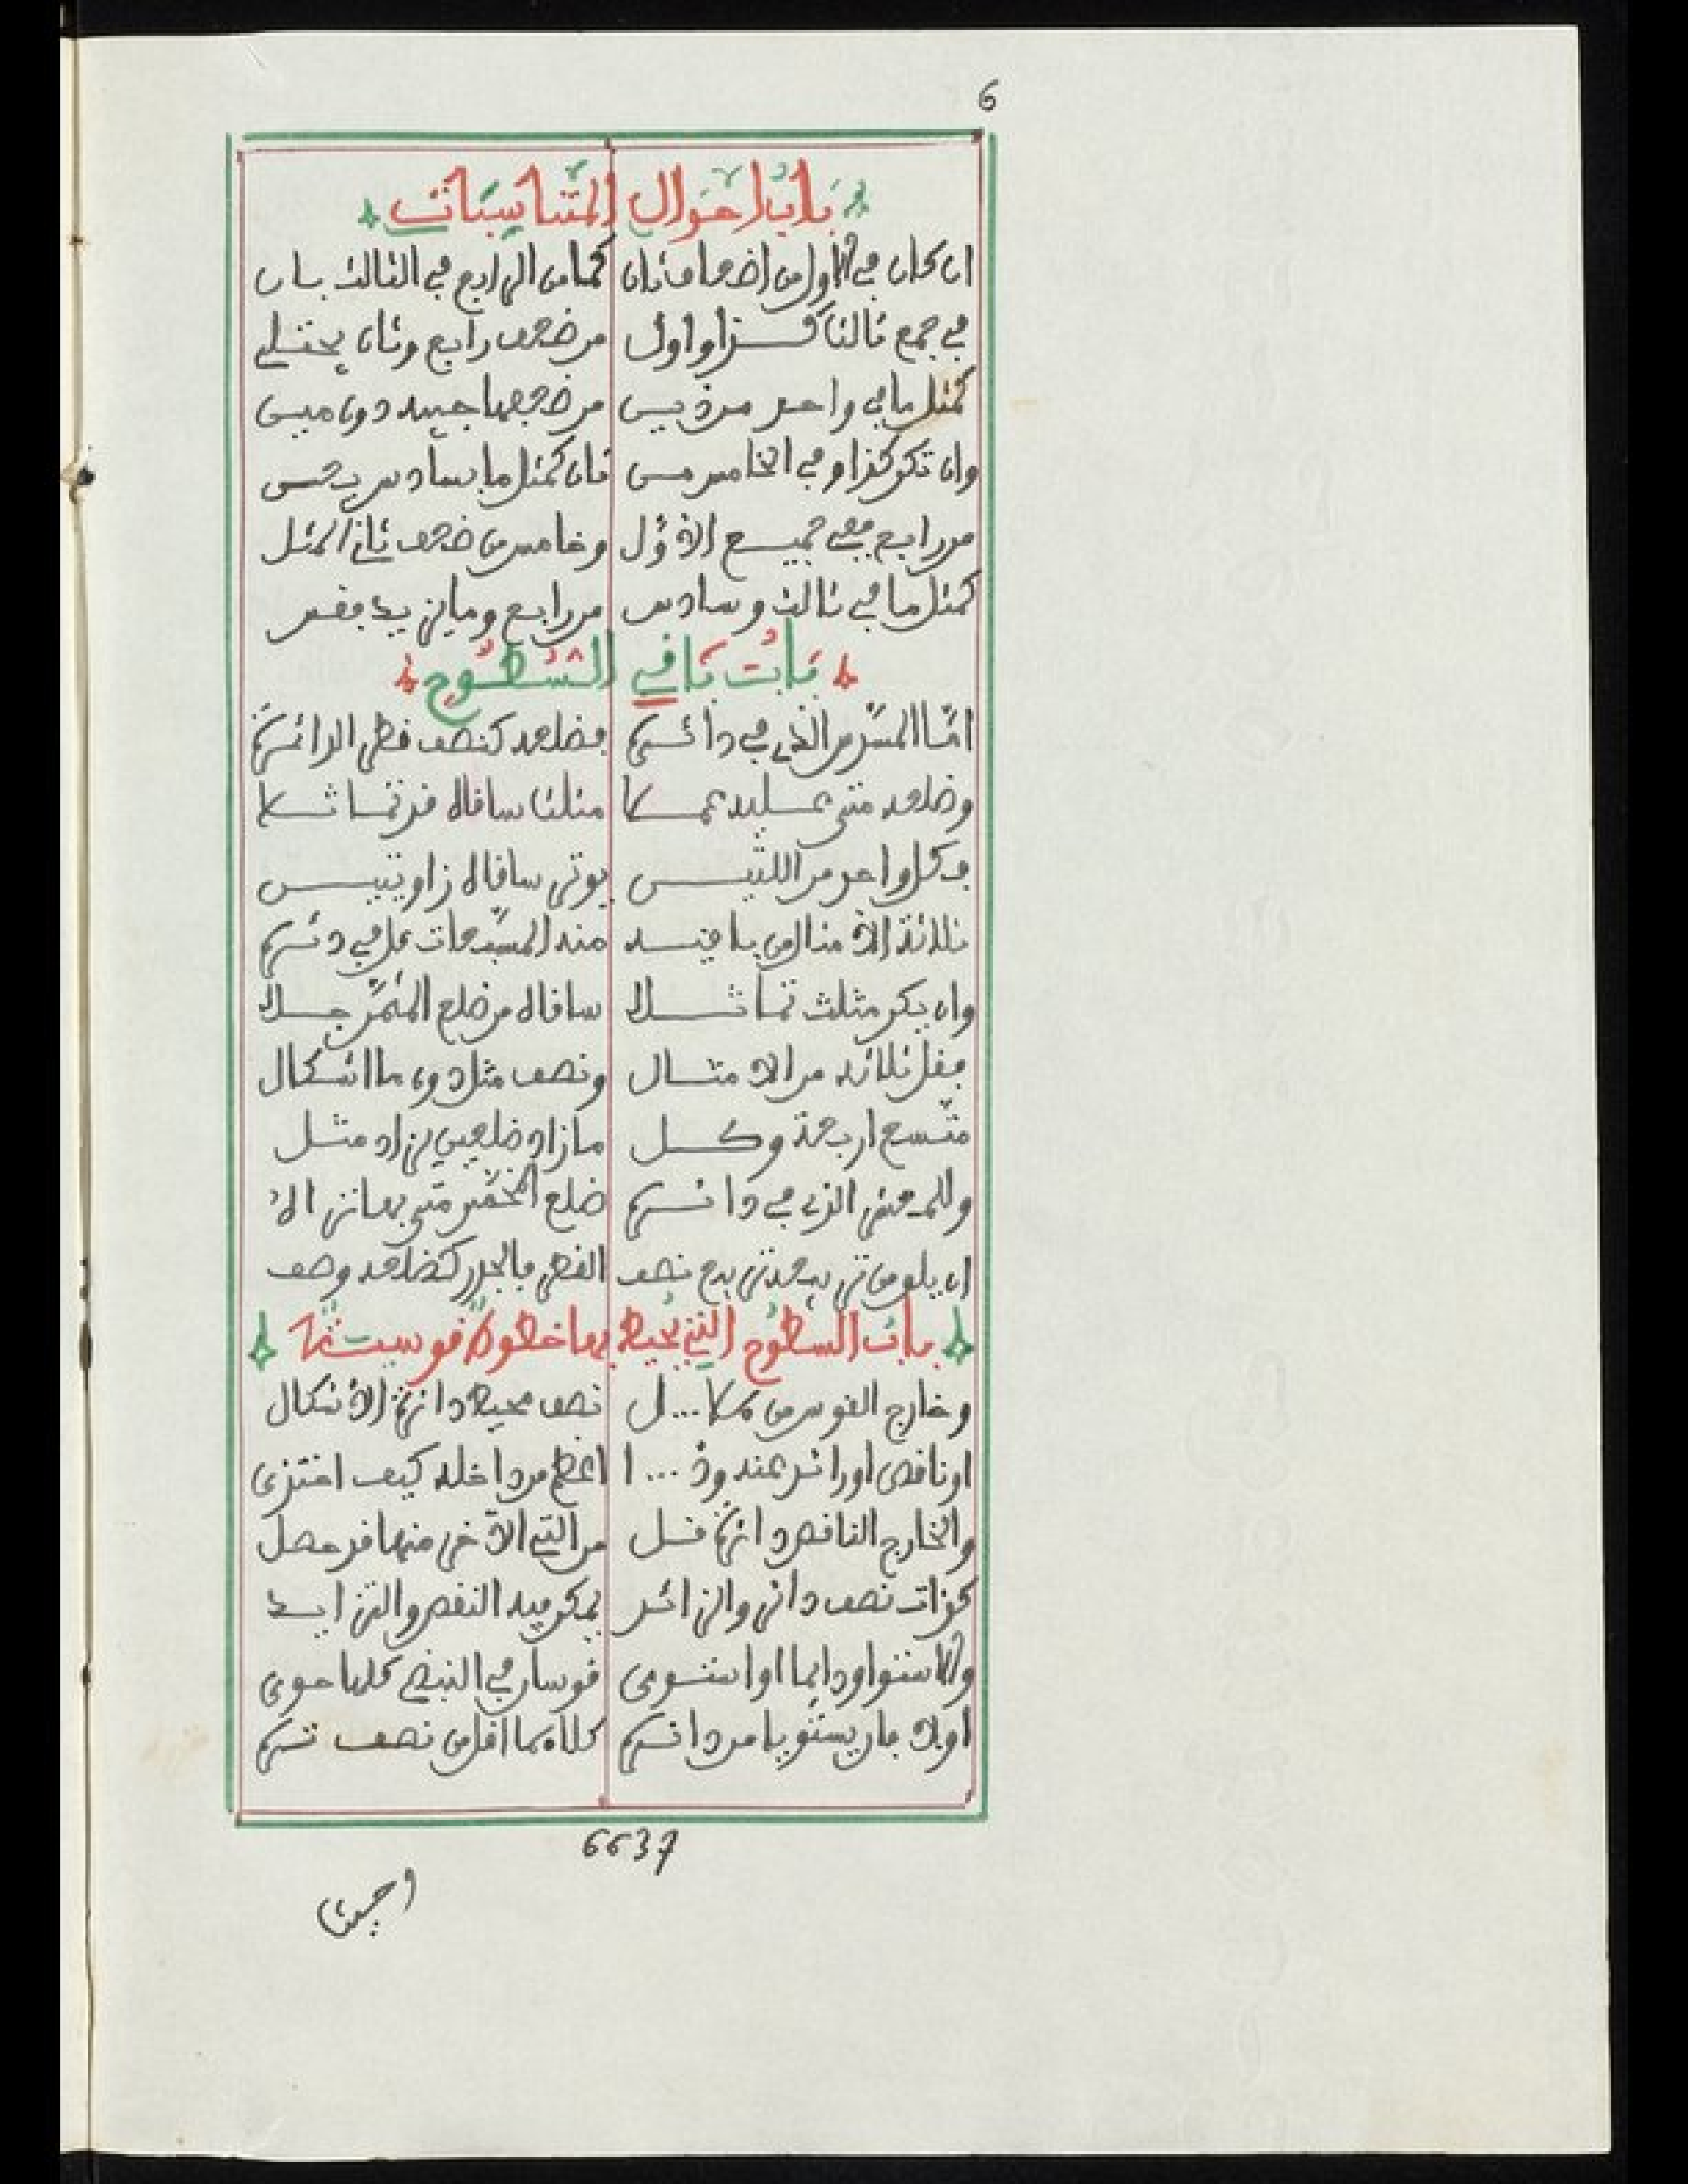 6
باب احوال المتناسبات
ان كان في الاول من اضعاف ثان كما من الرابع في الثالث بان
في جمع ثالثا كذا واول من ضعف رابع وثان يجتلي
كمثل ما في واحد من ذين من ضعفها جيه دون مين
وان تكن كذا وفي الخامس من ثان كمثل ما بسادس يعن
من رابع ففي جميع الاول وخامس من ضعف ثان المثل
كمثل ما في ثالث وسادس من رابع وما يزيد فقس
باب ما في السطوح
اما المسدس الذي في دائرة فضلعه كنصف قطر الدائرة
وضلعه متى عليه عملا مثلثا ساقاه قد تماثلا
فكل واحد من اللتين يوتر ساقاه زاويتين
ثلاثة الامثال من باقيه منه المسبعات عمل في دئرة
وان يكن مثلث تماثلا ساقاه من ضلع المثمن جلا
فقل ثلاثه من الامثال ونصف مثل دون ما اشكال
متسع اربعة وكل ما زاد ضلعين يزاد مثل
وللمعشر الذي في دائرة ضلع المخمس متى بها نزل الا
ان يلو من تربيعه تربيع نصف القطر فالجذر كضلعه وصف
باب السطوح التي يحيط بها خطوط قوسية
وخارج القوس من كا...ل نصف محيط دائرة الاشكال
او ناقص او زائد عنه وذ...ا اعظم من داخله كيف احتذى
والخارج الناقص دائرة قل من التي الاخرى منها قد حصل
كذات نصف دائر والزائد يمكن فيه النقص والتزايد
والاستوا ودائما او استوى قوسان في البيضي كلها حوى
اولا بان يستويا من دائرة كلاهما اقل من نصف ترة
6637
احيتا